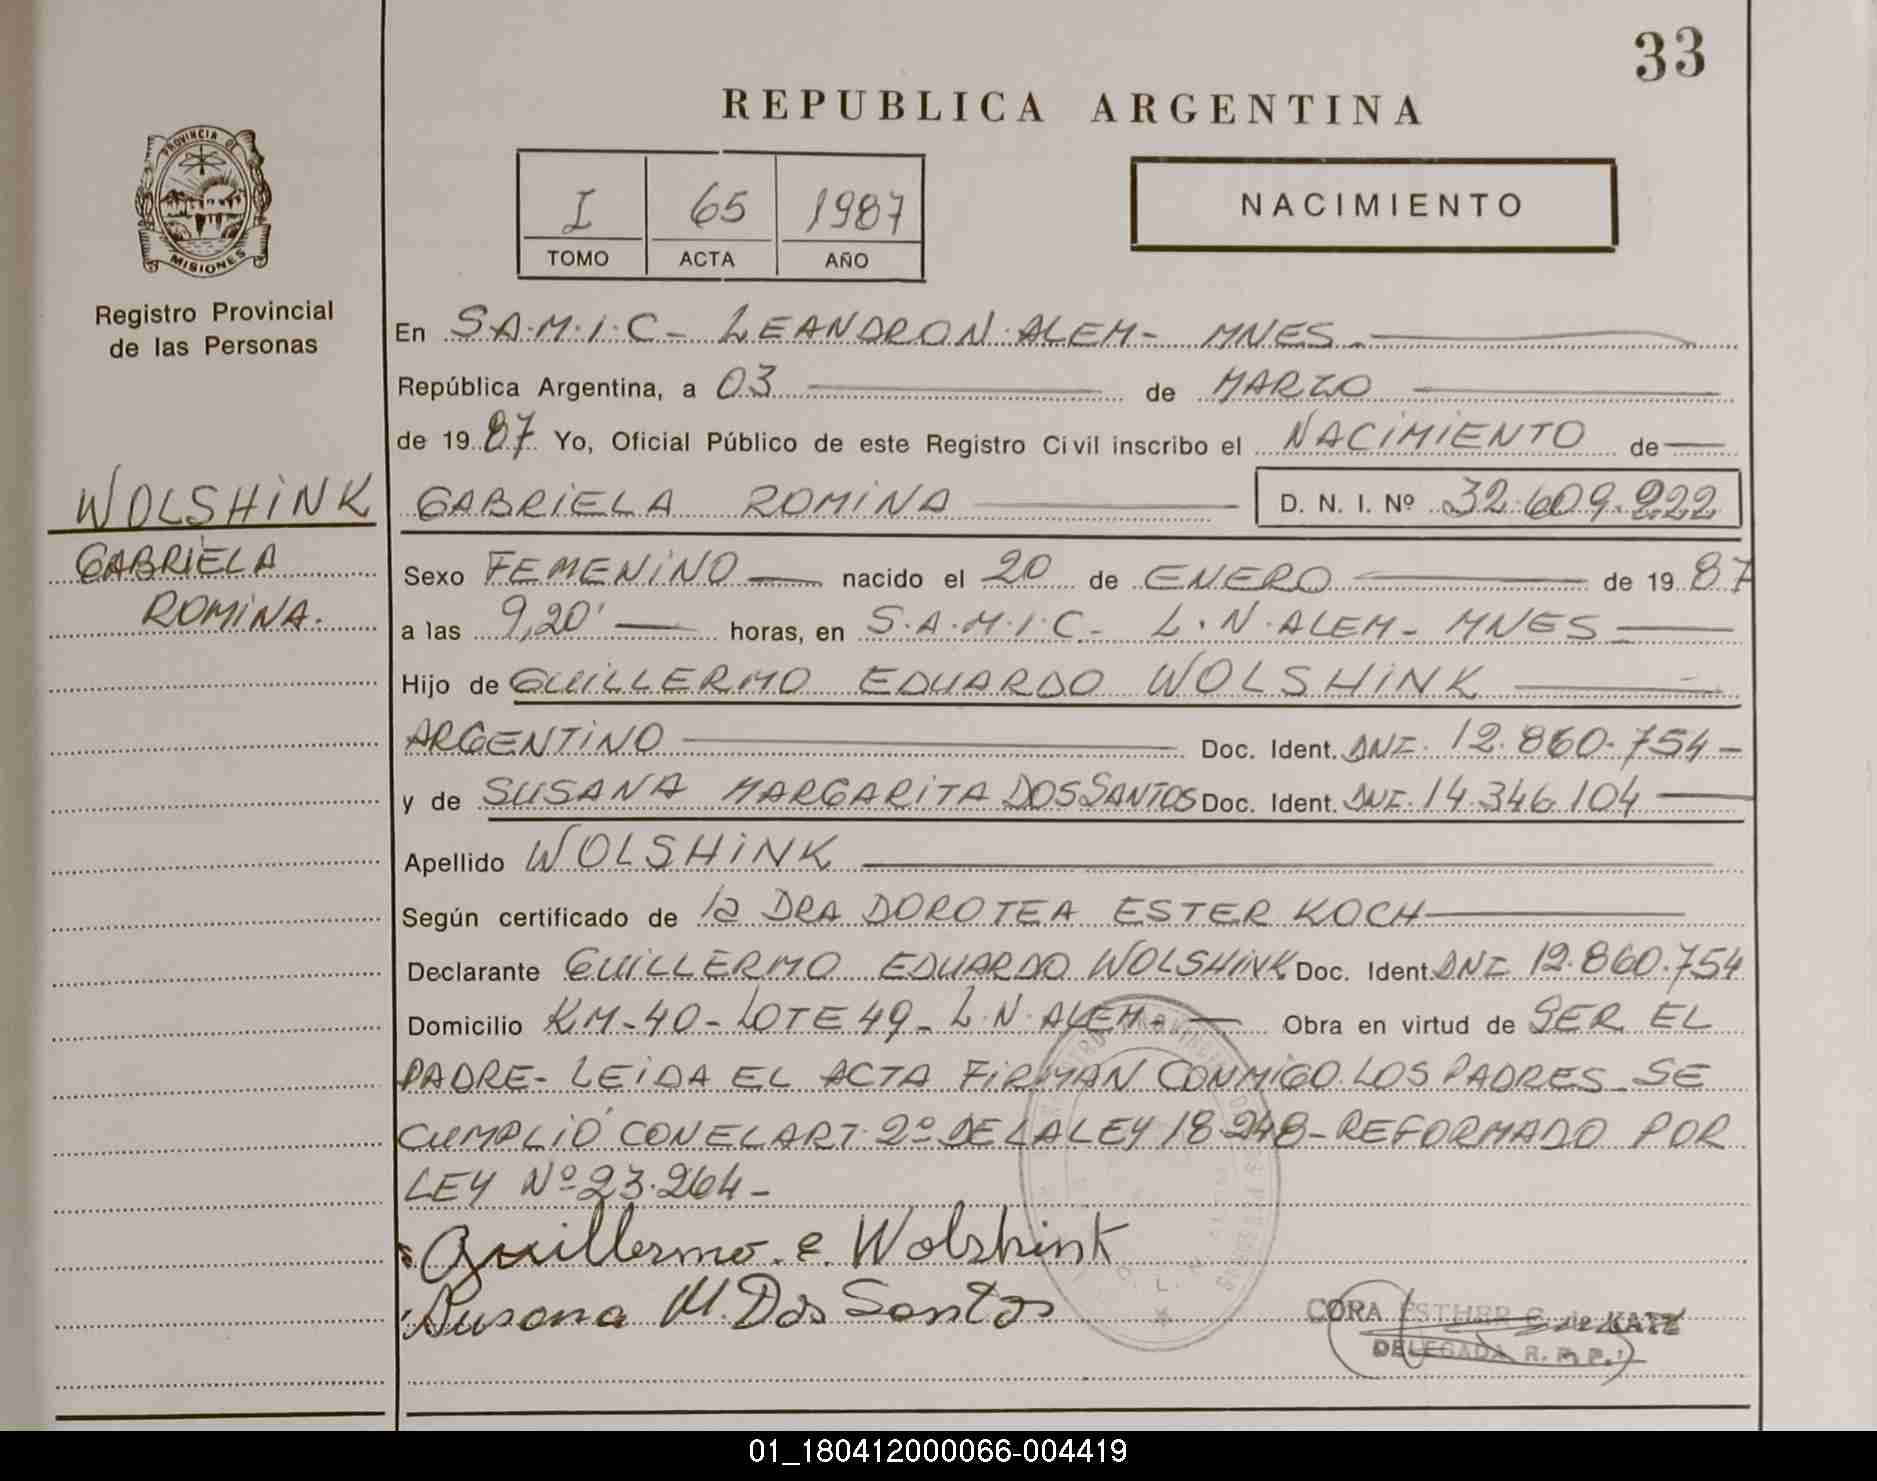 33
REPUBLICA ARGENTINA
PROVINCIA DE
MISIONES
Registro Provincial
de las Personas
I 65 1987
TOMO ACTA AÑO
NACIMIENTO
En S.A.M.I.C - LEANDRO N. ALEM - MNES.
República Argentina, a 03 de MARZO
de 1987 Yo, Oficial Público de este Registro Civil inscribo el NACIMIENTO de
WOLSHINK
GABRIELA
ROMINA.
GABRIELA ROMINA D. N. I. Nº 32.609.222
Sexo FEMENINO nacido el 20 de ENERO de 1987
a las 9,20' horas, en S.A.M.I.C - L.N. ALEM - MNES
Hijo de GUILLERMO EDUARDO WOLSHINK
ARGENTINO Doc. Ident. DNI. 12.860.754 -
y de SUSANA MARGARITA DOS SANTOS Doc. Ident. DNI. 14.346.104
Apellido WOLSHINK
Según certificado de la DRA DOROTEA ESTER KOCH
Declarante GUILLERMO EDUARDO WOLSHINK Doc. Ident. DNI 12.860.754
Domicilio KM-40- LOTE 49- L.N. ALEM - Obra en virtud de SER EL
PADRE- LEIDA EL ACTA FIRMAN CONMIGO LOS PADRES SE
CUMPLIÓ CON EL ART. 2º DE LA LEY 18.248- REFORMADO POR
LEY Nº 23.264-
Guillermo e. Wolshink
Susana M. Dos Santos
CORA ESTHER de KATZ
DELEGADA R. P. P.
01_180412000066-004419